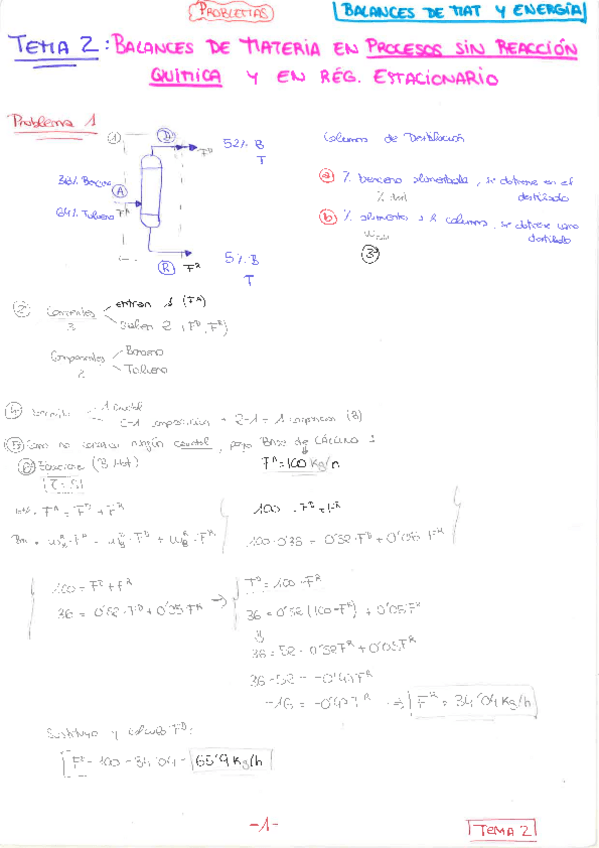 PROBLEMAS
BALANCES DE MAT Y ENERGÍA
TEMA 2: BALANCES DE MATERIA EN PROCESOS SIN REACCIÓN
QUÍMICA Y EN RÉG. ESTACIONARIO
Problema 1
1
D
F^D
52% B
T
Columna de Destilación
36% Benceno
A
64% Tolueno
F^A
a) % benceno alimentado, se obtiene en el
destilado
b) % alimento a la columna, se obtiene como
destilado
3
R
F^R
5% B
T
2 Corrientes
3
entran 1 (F^A)
Salen 2 (F^D, F^R)
Componentes
2
Benceno
Tolueno
4
1 caudal
C-1 composición = 2-1 = 1 composición (B)
5 Como no conozco ningún caudal, pongo Base de CÁLCULO:
6 Balance (B. Mat)
F^A = 100 kg/h
E = S
F^A = F^D + F^R
100 = F^D + F^R
100·0'36 = 0'52·F^D + 0'05·F^R
100 = F^D + F^R
36 = 0'52·F^D + 0'05·F^R
F^D = 100 - F^R
36 = 0'52(100-F^R) + 0'05F^R
36 = 52 - 0'52F^R + 0'05F^R
36-52 = -0'47F^R
-16 = -0'47F^R → F^R = 34'04 kg/h
Sustituyo y calculo F^D:
F^D = 100 - 34'04 = 65'9 kg/h
-1-
TEMA 2